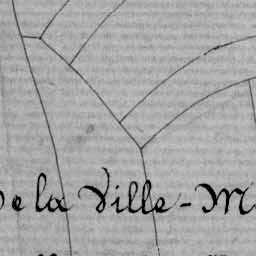 e la Ville-M